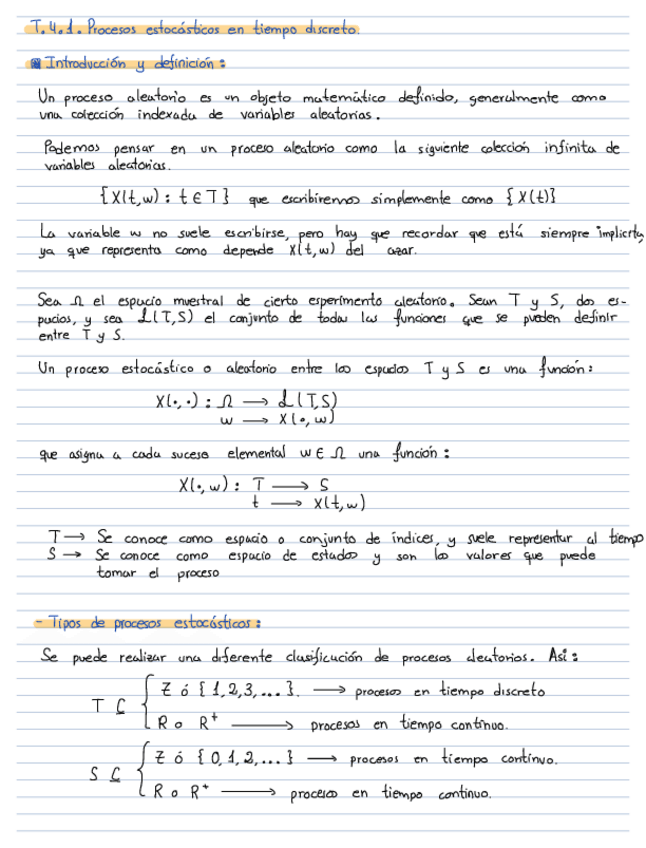 T.4.1. Procesos estocásticos en tiempo discreto.
Introducción y definición:
Un proceso aleatorio es un objeto matemático definido, generalmente como
una colección indexada de variables aleatorias.
Podemos pensar en un proceso aleatorio como la siguiente colección infinita de
variables aleatorias.
{X(t,w) : t ∈ T} que escribiremos simplemente como {X(t)}
La variable w no suele escribirse, pero hay que recordar que está siempre implícita,
ya que representa como depende X(t,w) del azar.
Sea Ω el espacio muestral de cierto experimento aleatorio. Sean T y S, dos es-
pacios, y sea L(T,S) el conjunto de todas las funciones que se pueden definir
entre T y S.
Un proceso estocástico o aleatorio entre los espacios T y S es una función:
X(·,·) : Ω → L(T,S)
w → X(·,w)
que asigna a cada suceso elemental w ∈ Ω una función:
X(·,w) : T → S
t → X(t,w)
T → Se conoce como espacio o conjunto de índices, y suele representar al tiempo
S → Se conoce como espacio de estados y son los valores que puede
tomar el proceso
- Tipos de procesos estocásticos:
Se puede realizar una diferente clasificación de procesos aleatorios. Así:
T ⊆ { Z ó {1,2,3,...}. → procesos en tiempo discreto
R o R⁺ → procesos en tiempo continuo.
S ⊆ { Z ó {0,1,2,...} → procesos en tiempo continuo.
R o R⁺ → procesos en tiempo continuo.